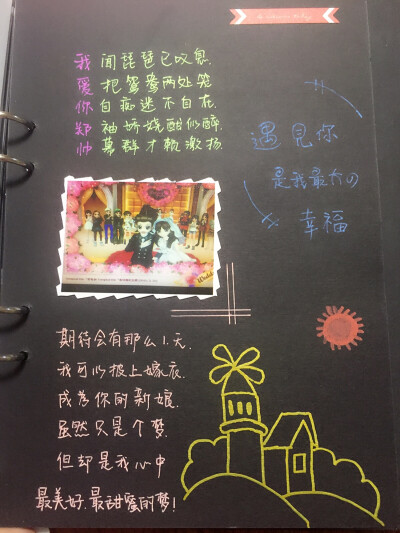 我 闻琵琶已叹息.
爱 把鸳鸯两处
你 自痴迷不自在.
郑 袖娇娆酣似醉.
帅 幕群才颇激扬.
遇见你
是我最大の
幸福
期待会有那么1天.
我可以披上嫁衣.
成为你的新娘.
虽然只是个梦.
但却是我心中
最美好.最甜蜜的梦!